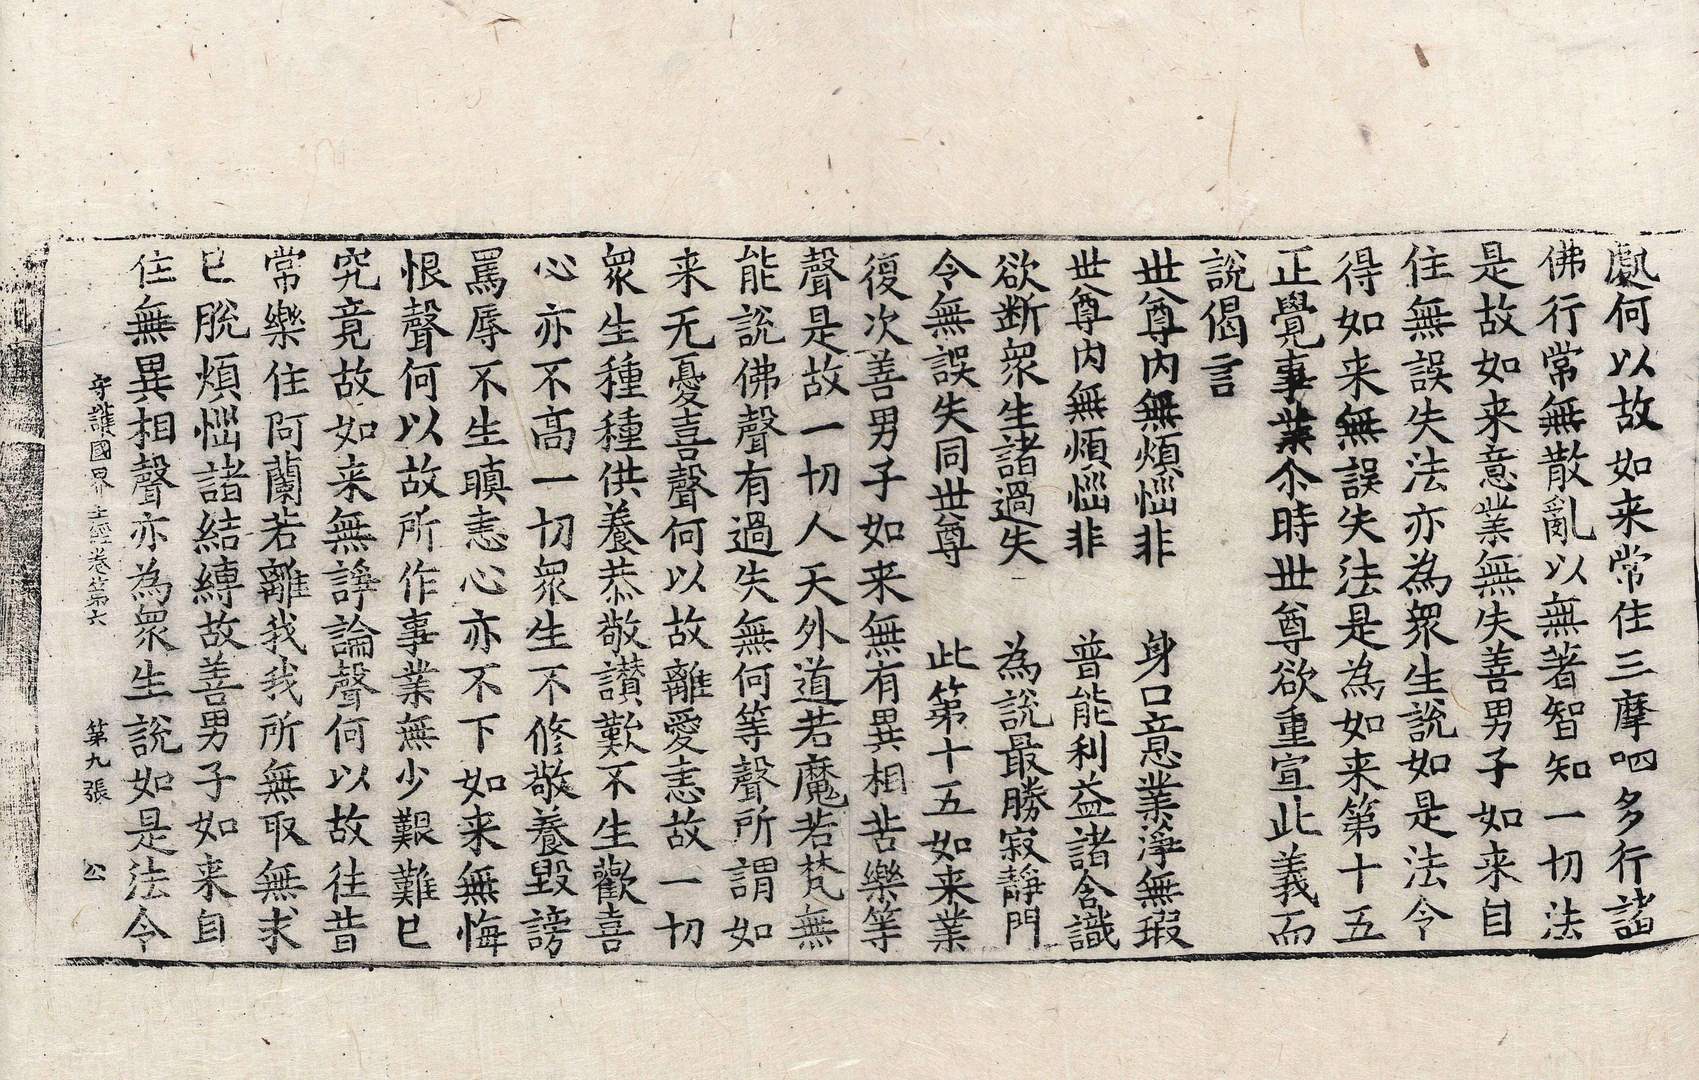 處何以故如来常住三摩呬多行諸
佛行常無散亂以無著智知一切法
是故如来意業無失善男子如来自
住無誤失法亦為衆生說如是法令
得如来無誤失法是為如来第十五
正覺事業尒時世尊欲重宣此義而
說偈言
世尊内無煩惱非　身口意業淨無瑕
世尊内無煩惱非　普能利益諸含識
欲断衆生諸過失　為説最勝寂靜門
令無誤失同世尊　此第十五如来業
復次善男子如来無有異相苦樂等
聲是故一切人天外道若魔若梵無
能說佛聲有過失無何等聲所謂如
来无憂喜聲何以故離愛恚故一切
衆生種種供養恭敬讃歎不生歡喜
心亦不高一切衆生不修敬養毀謗
罵辱不生瞋恚心亦不下如来無悔
恨聲何以故所作事業無少艱難已
究竟故如来無諍論聲何以故往昔
常樂住阿蘭若離我我所無取無求
已脫煩惱諸結縛故善男子如来自
住無異相聲亦為衆生說如是法令
守護國界主經卷第六　第九張　公